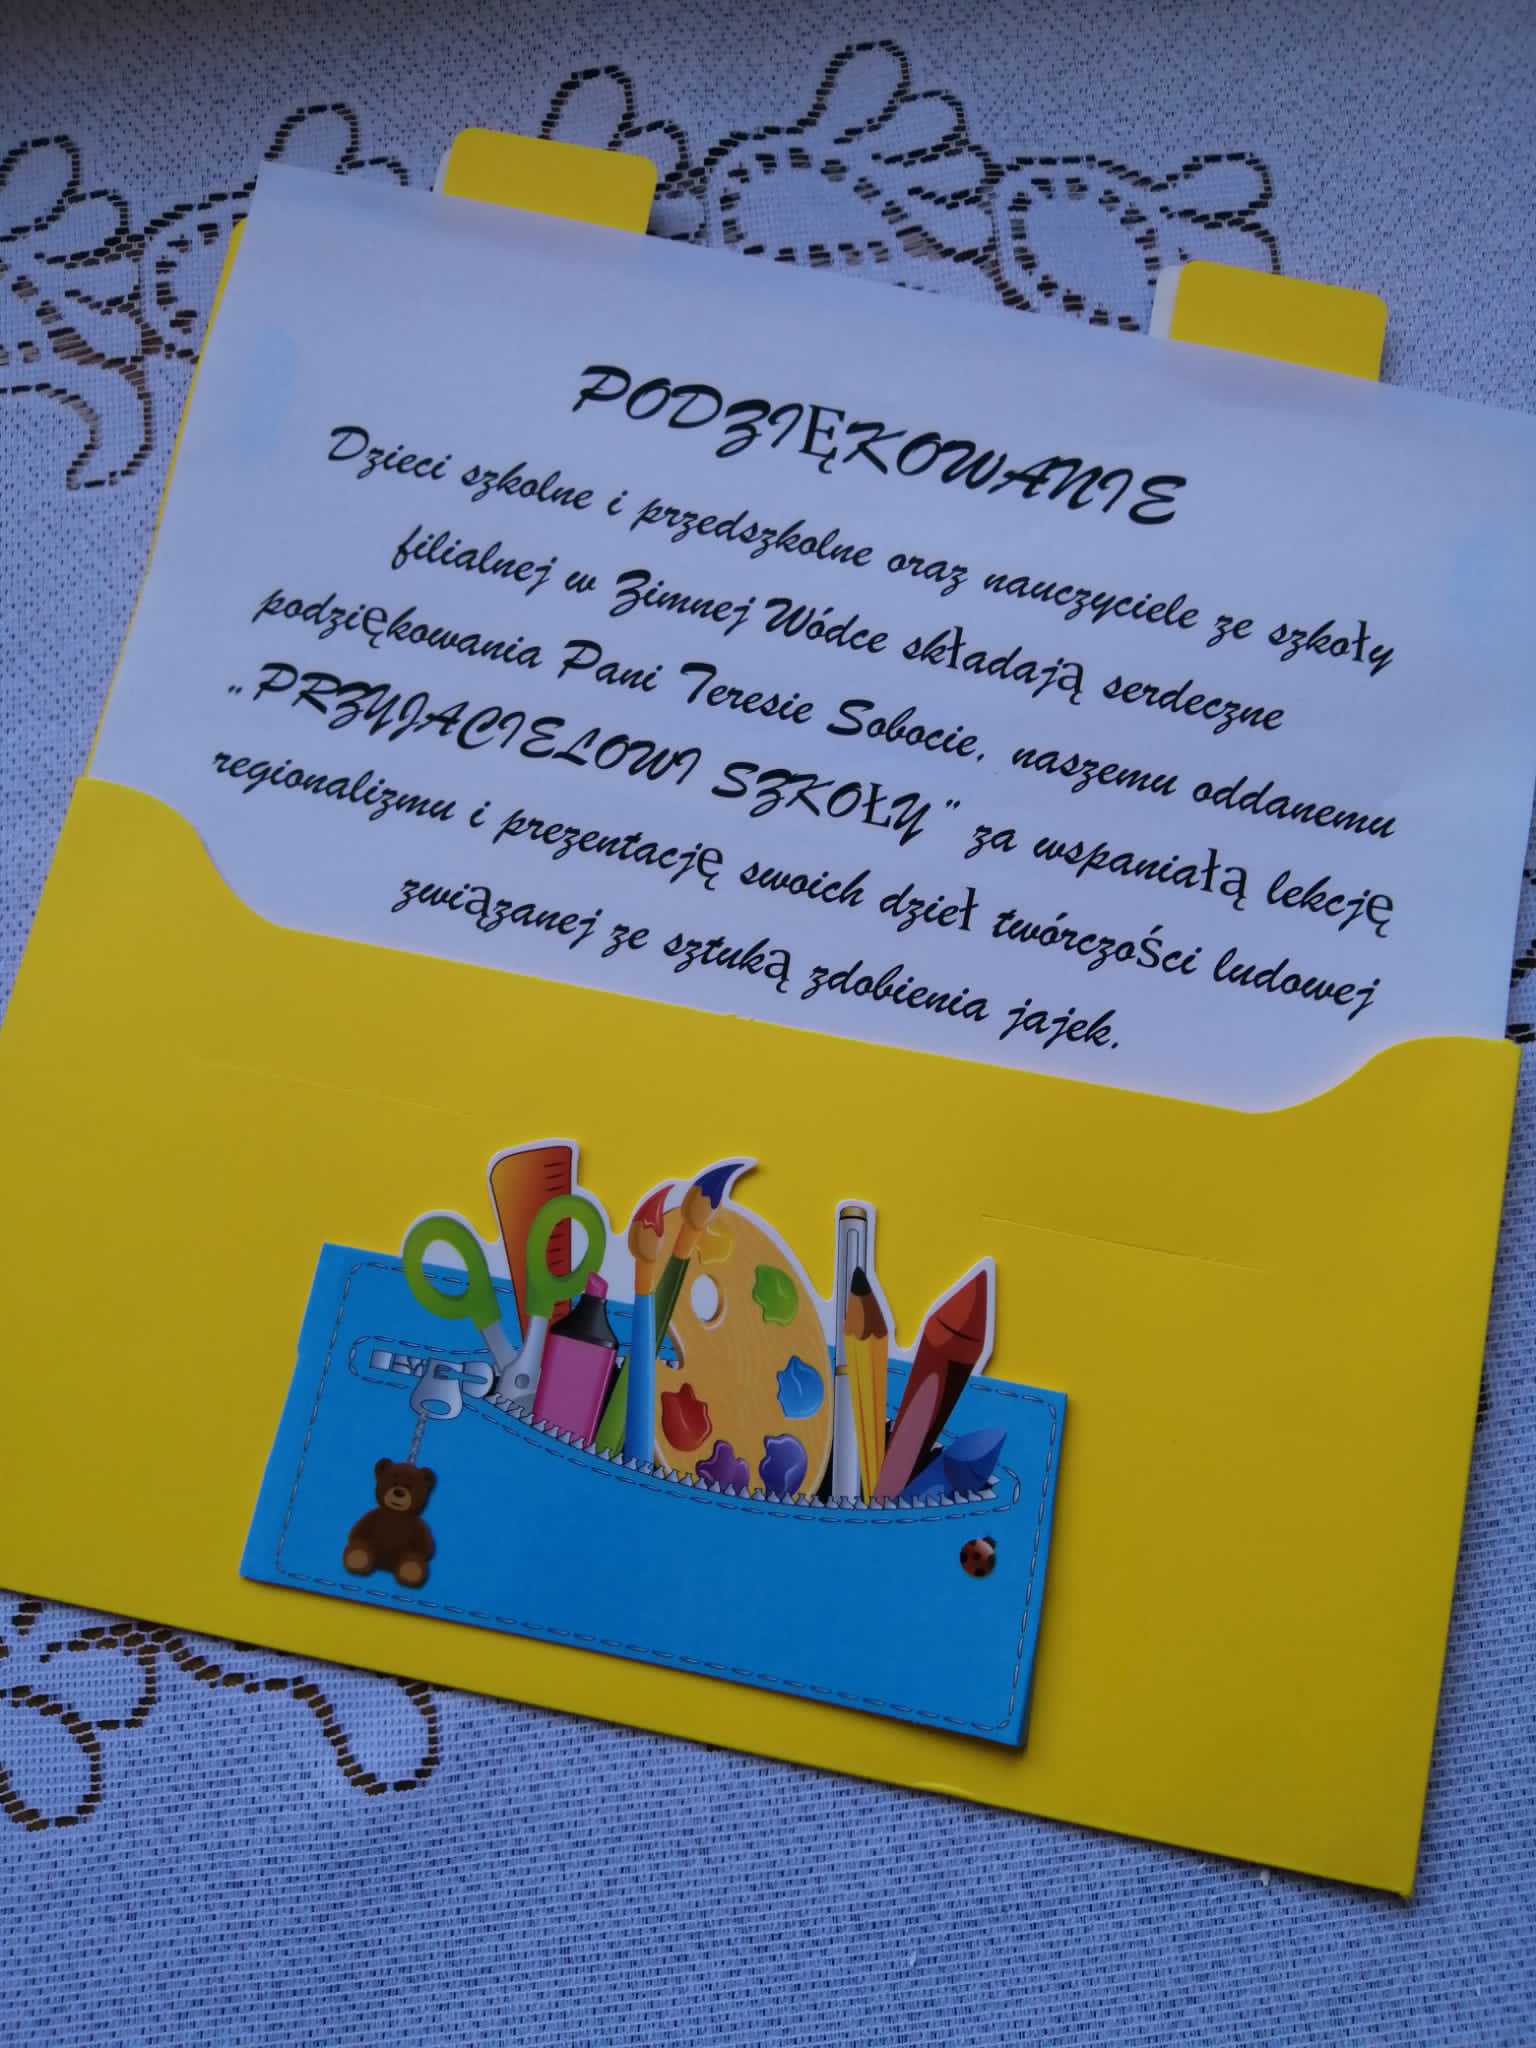 PODZIĘKOWANIE
Dzieci szkolne i przedszkolne oraz nauczyciele ze szkoły
filialnej w Zimnej Wódce składają serdeczne
podziękowania Pani Teresie Sobocie, naszemu oddanemu
„PRZYJACIELOWI SZKOŁY” za wspaniałą lekcję
regionalizmu i prezentację swoich dzieł twórczości ludowej
związanej ze sztuką zdobienia jajek.